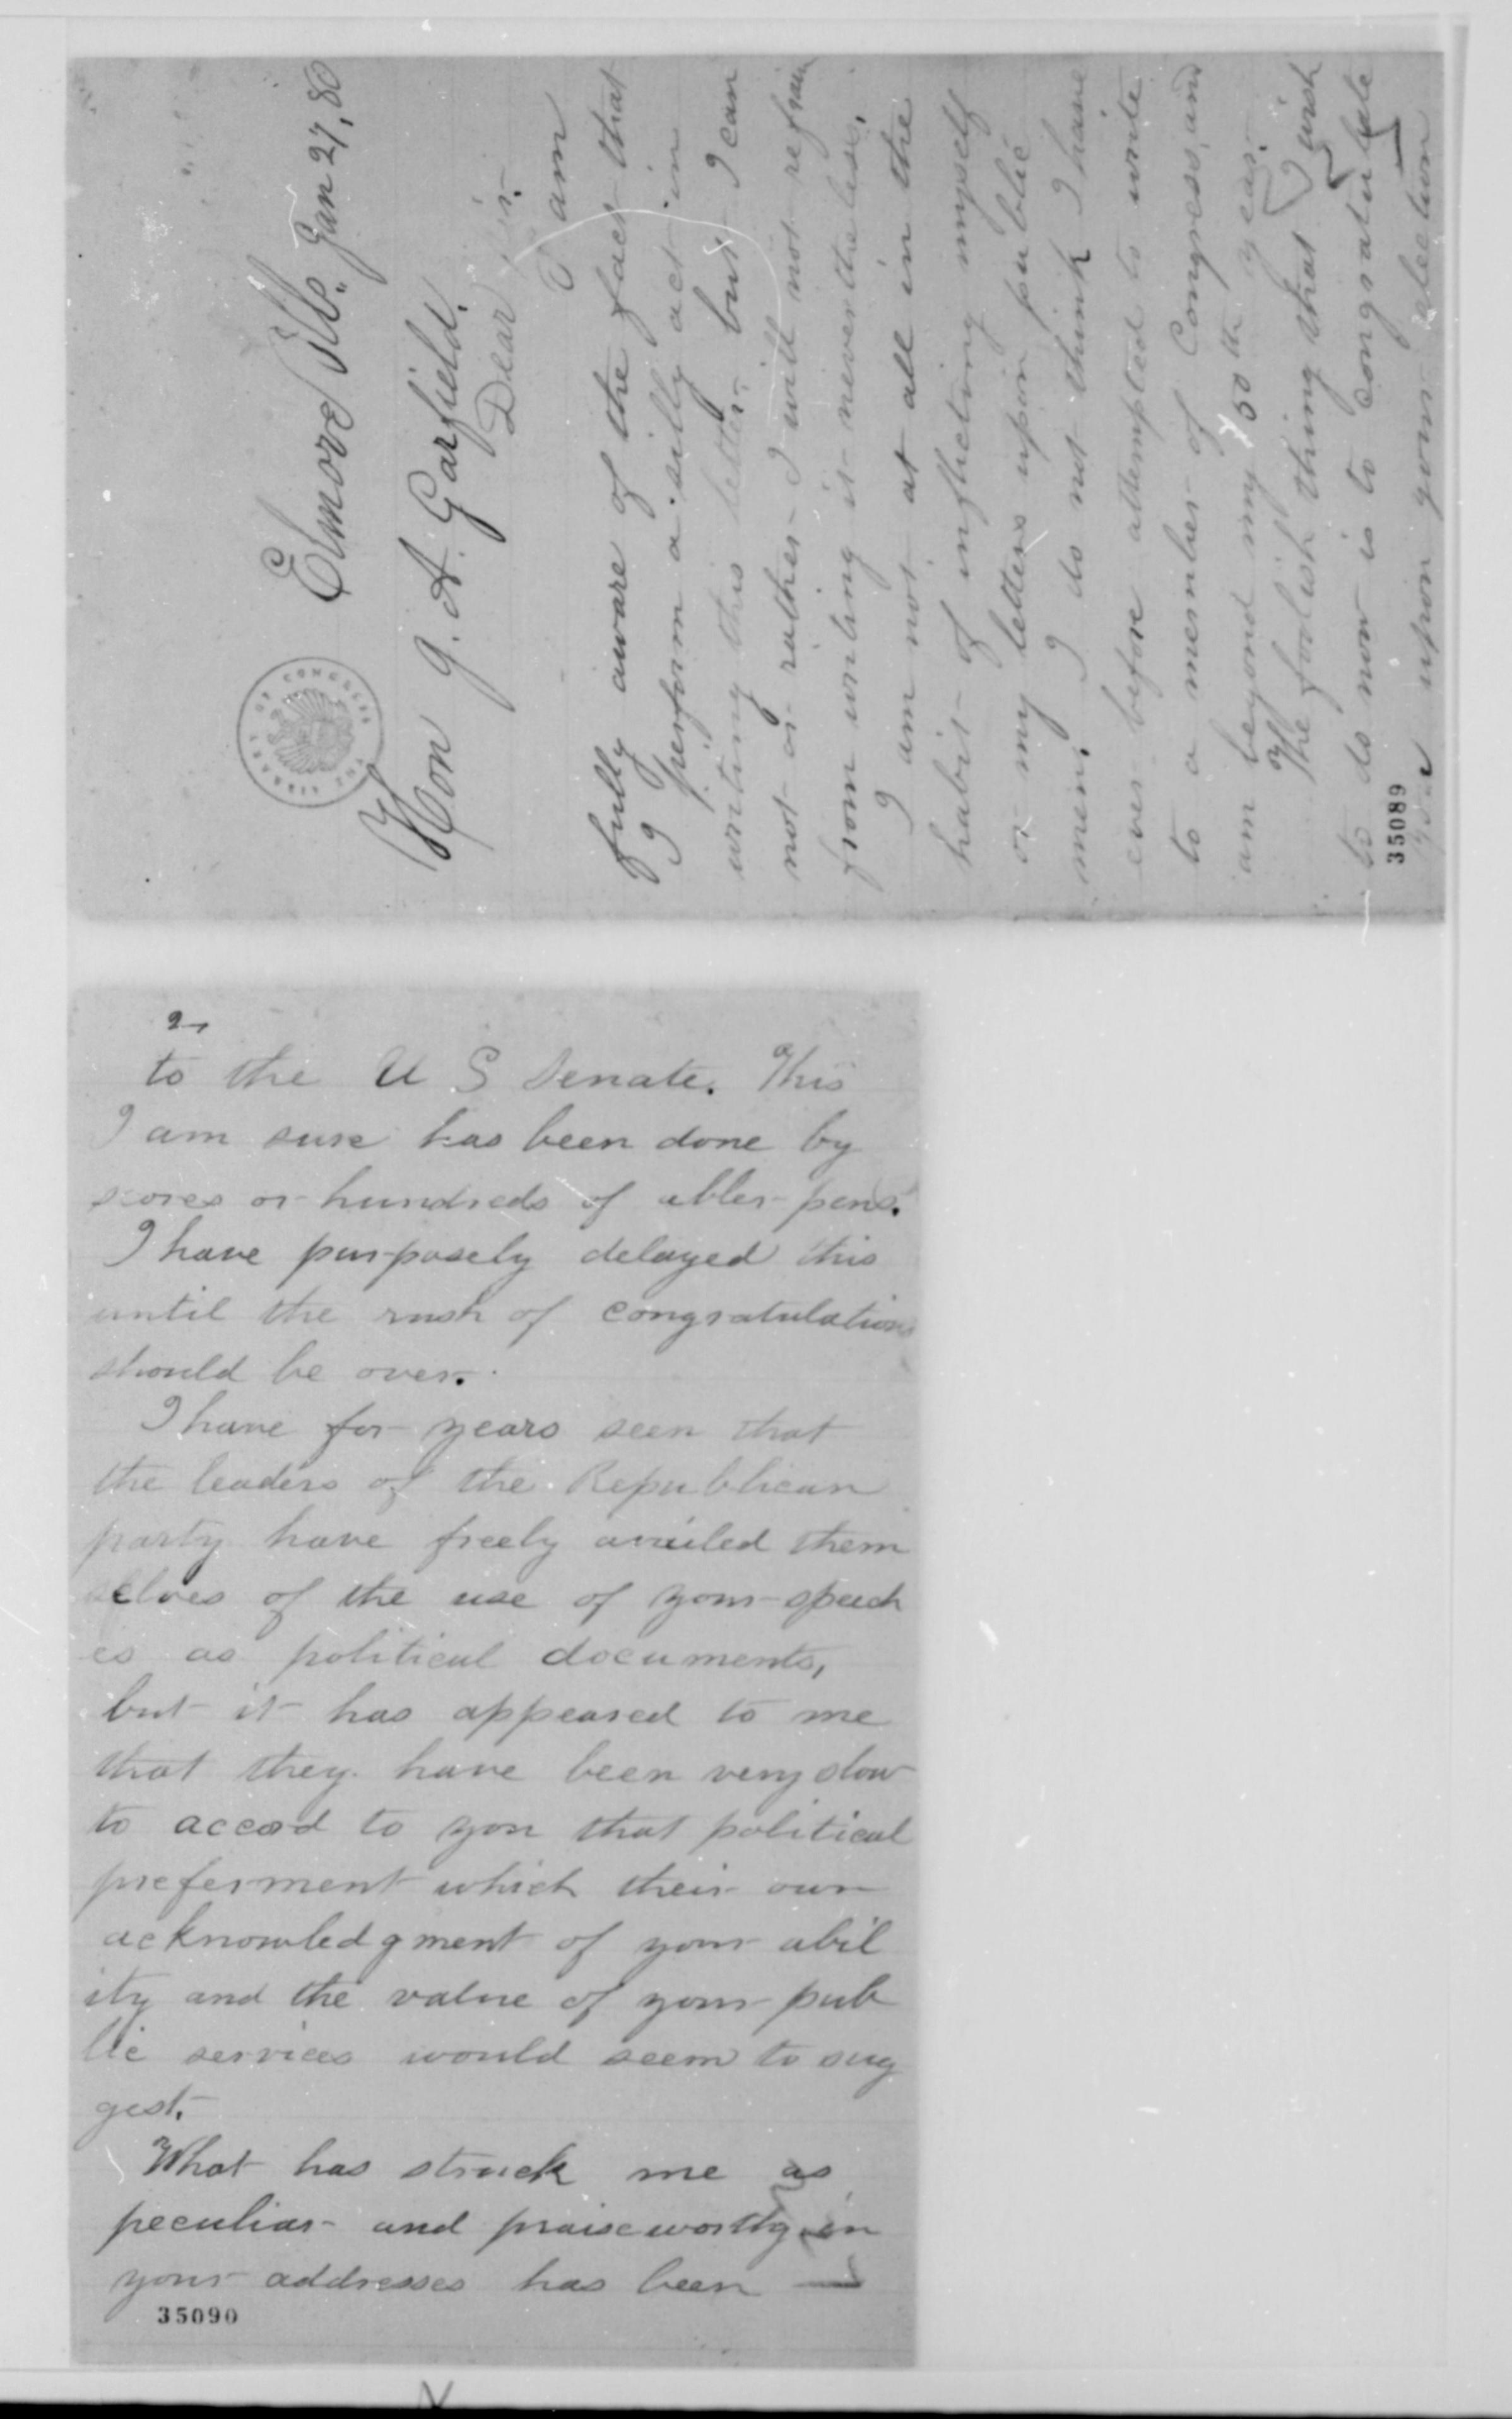 Elmore Ills. Jan 27, 80
Hon J. A. Garfield.
Dear Sir.
I am
fully aware of the fact that
I perform a silly act in
writing this letter but I can
not or rather I will not refrain
from writing it nevertheless.
I am not at all in the
habit of inflicting myself
or my letters upon public
men. I do not think I have
ever before attempted to write
to a member of Congress, and
am beyond my 50th year.
The foolish thing that I wish
to do now is to congratulate
you upon your election
35089
THE LIBRARY OF CONGRESS
2
to the U S Senate. This
I am sure has been done by
scores or hundreds of abler pens.
I have purposely delayed this
until the rush of congratulations
should be over.
I have for years seen that
the leaders of the Republican
party have freely availed them
selves of the use of your speech
es as political documents,
but it has appeared to me
that they have been very slow
to accord to you that political
preferment which their own
acknowledgment of your abil
ity and the value of your pub
lic services would seem to sug
gest.
What has struck me as
peculiar and praiseworthy in
your addresses has been —
35090